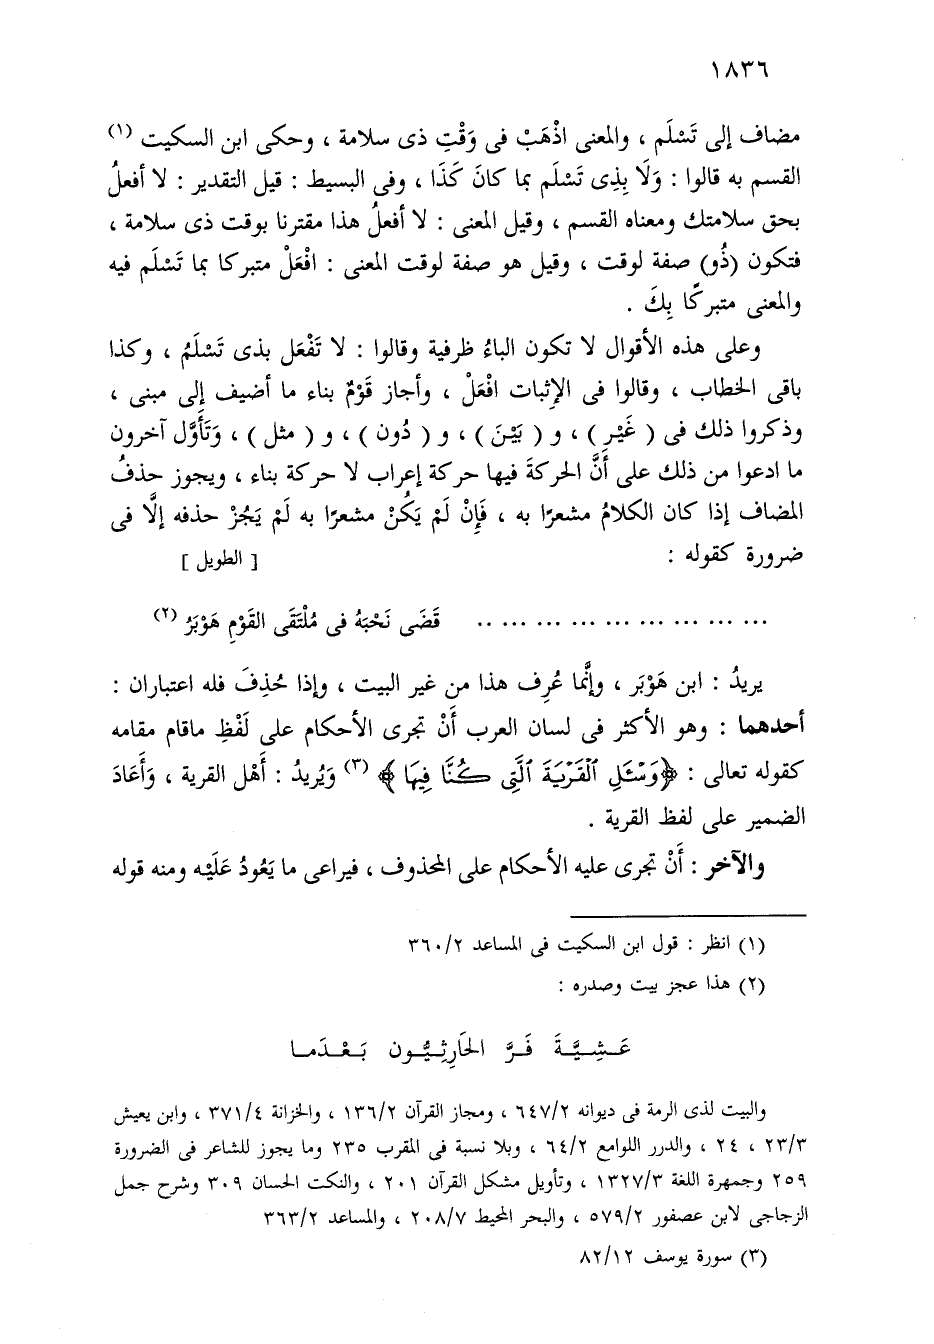 ١٨٣٦
مضاف إلى تَسْلَم ، والمعنى اذْهَبْ فى وَقْتِ ذى سلامة ، وحكى ابن السكيت (١)
القسم به قالوا : وَلَا بِذِى تَسْلَم بما كانَ كَذَا ، وفى البسيط : قيل التقدير : لا أفعلُ
بحق سلامتك ومعناه القسم ، وقيل المعنى : لا أفعلُ هذا مقترنا بوقت ذى سلامة ،
فتكون (ذُو) صفة لوقت ، وقيل هو صفة لوقت المعنى : افْعَلْ متبركا بما تَسْلَم فيه
والمعنى متبركًا بِكَ .
وعلى هذه الأقوال لا تكون الباءُ ظرفية وقالوا : لا تَفْعَل بذى تَسْلَمُ ، وكذا
باقى الخطاب ، وقالوا فى الإثبات افْعَلْ ، وأجاز قَوْمٌ بناء ما أضيف إلى مبنى ،
وذكروا ذلك فى ( غَيْر ) ، و ( بَيْنَ ) ، و ( دُون ) ، و ( مثل ) ، وَتَأَوَّل آخرون
ما ادعوا من ذلك على أَنَّ الحركةَ فيها حركة إعراب لا حركة بناء ، ويجوز حذفُ
المضاف إذا كان الكلامُ مشعرًا به ، فَإِنْ لَمْ يَكُنْ مشعرًا به لَمْ يَجُزْ حذفه إلَّا فى
ضرورة كقوله : [ الطويل ]
... ... ... ... ... ... ... ... .. قَضَى نَحْبَهُ فى مُلْتَقَى القَوْمِ هَوْبَرُ (٢)
يريدُ : ابن هَوْبَر ، وإنَّما عُرِف هذا من غير البيت ، وإذا حُذِفَ فله اعتباران :
أحدهما : وهو الأكثر فى لسان العرب أَنْ تجرى الأحكام على لَفْظِ ماقام مقامه
كقوله تعالى : ﴿وَسْـَٔلِ ٱلْقَرْيَةَ ٱلَّتِى كُنَّا فِيهَا﴾ (٣) وَيُريدُ : أَهْل القرية ، وَأَعَادَ
الضمير على لفظ القرية .
والآخر : أَنْ تجرى عليه الأحكام على المحذوف ، فيراعى ما يَعُودُ عَلَيْه ومنه قوله
(١) انظر : قول ابن السكيت فى المساعد ٣٦٠/٢
(٢) هذا عجز بيت وصدره :
عَـشِـيَّـةَ فَـرَّ الحَارِثِـيُّـون بَـعْـدَمـا
والبيت لذى الرمة فى ديوانه ٦٤٧/٢ ، ومجاز القرآن ١٣٦/٢ ، والخزانة ٣٧١/٤ ، وابن يعيش
٢٣/٣ ، ٢٤ ، والدرر اللوامع ٦٤/٢ ، وبلا نسبة فى المقرب ٢٣٥ وما يجوز للشاعر فى الضرورة
٢٥٩ وجمهرة اللغة ١٣٢٧/٣ ، وتأويل مشكل القرآن ٢٠١ ، والنكت الحسان ٣٠٩ وشرح جمل
الزجاجى لابن عصفور ٥٧٩/٢ ، والبحر المحيط ٢٠٨/٧ ، والمساعد ٣٦٣/٢
(٣) سورة يوسف ٨٢/١٢